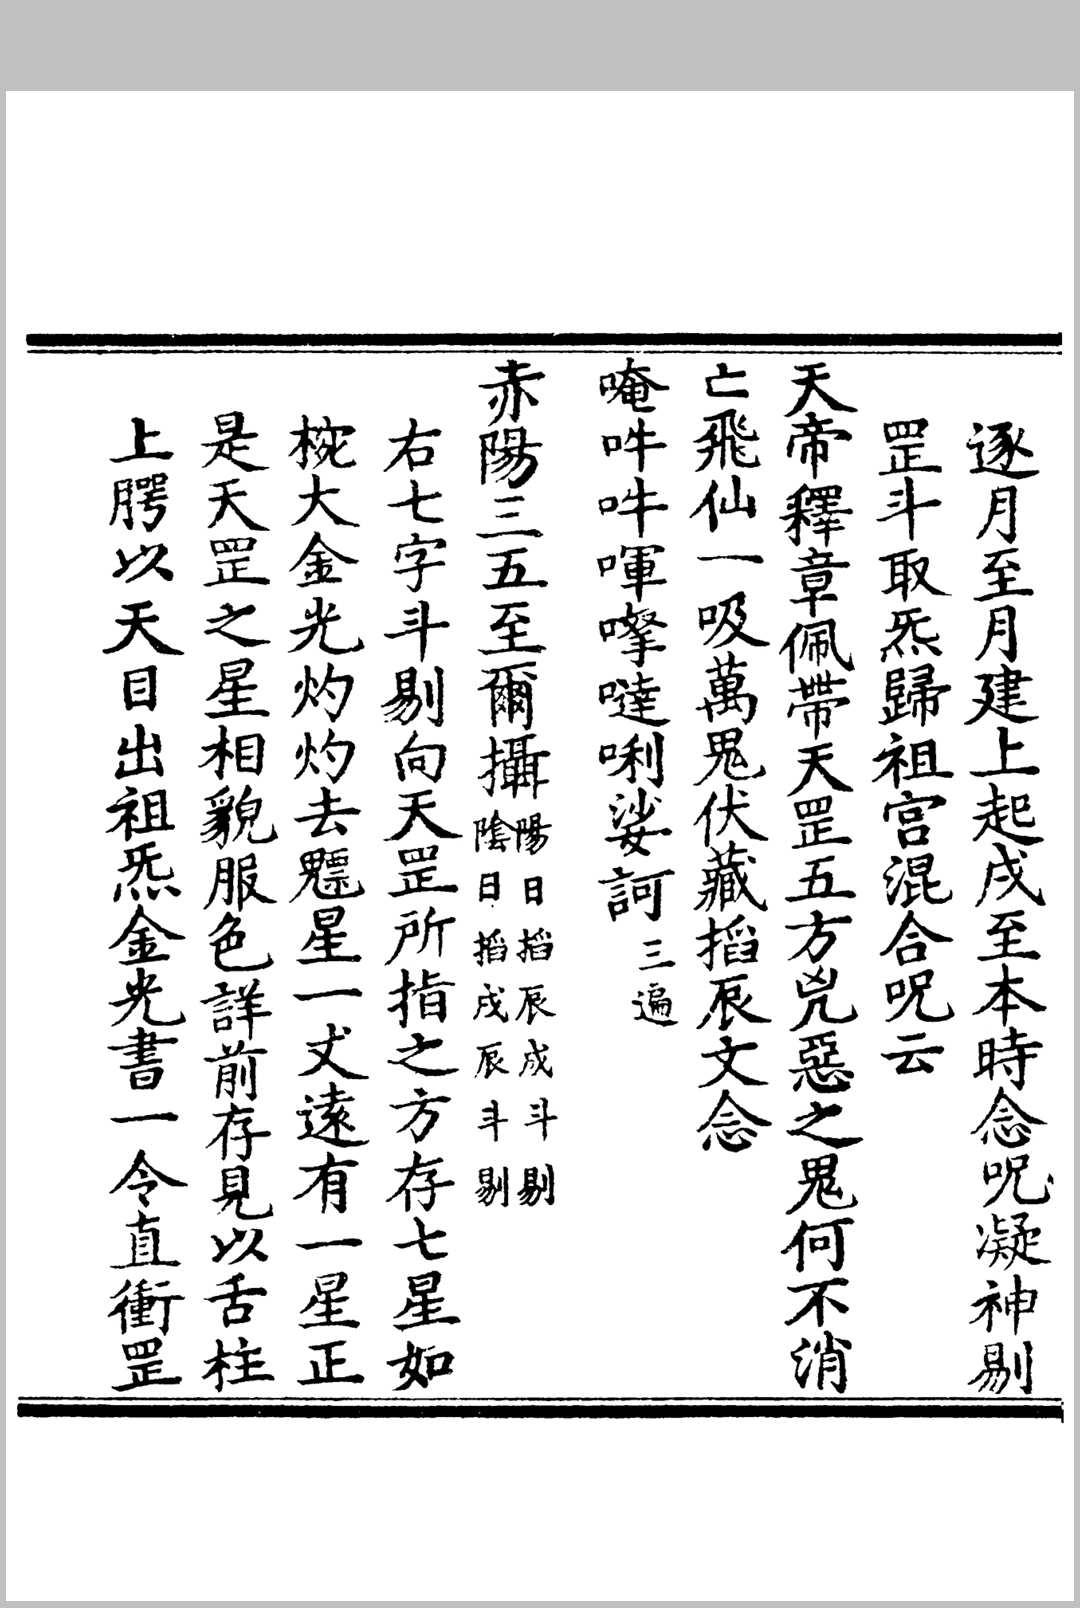 逐月至月建上起戌至本時念呪凝神剔
罡斗取炁歸祖宫混合呪云
天帝釋章佩帶天罡五方兇惡之鬼何不消
亡飛仙一吸萬鬼伏藏搯辰文念
唵吽吽㖔㘄噠唎娑訶三遍
赤陽三五至爾攝陽日搯辰戌斗剔
陰日搯戌辰斗剔
右七字斗剔向天罡所指之方存七星如
椀大金光灼灼去魒星一丈逺有一星正
是天罡之星相貌服色詳前存見以舌柱
上腭以天目出祖炁金光書一令直衝罡